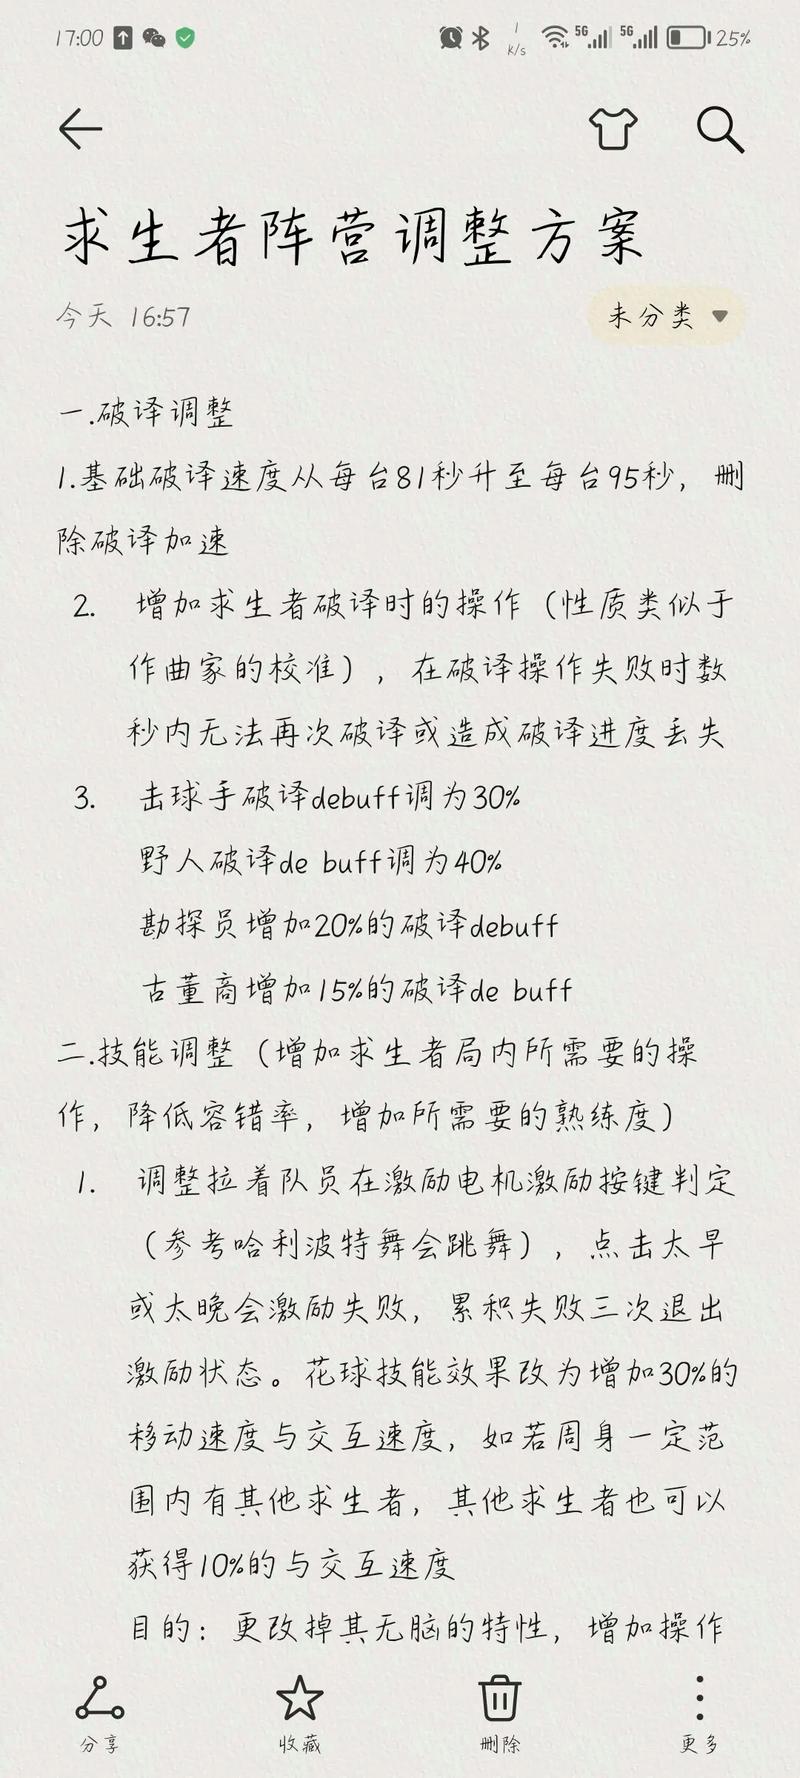 17:00 1 K/s 5G 5G 25%
求生者阵营调整方案
今天 16:57 未分类
一.破译调整
1.基础破译速度从每台81秒升至每台95秒，删
除破译加速
2. 增加求生者破译时的操作（性质类似于
作曲家的校准），在破译操作失败时数
秒内无法再次破译或造成破译进度丢失
3. 击球手破译debuff调为30%
野人破译de buff调为40%
勘探员增加20%的破译debuff
古董商增加15%的破译de buff
二.技能调整（增加求生者局内所需要的操
作，降低容错率，增加所需要的熟练度）
1. 调整拉着队员在激励电机激励按键判定
（参考哈利波特舞会跳舞），点击太早
或太晚会激励失败，累积失败三次退出
激励状态。花球技能效果改为增加30%的
移动速度与交互速度，如若周身一定范
围内有其他求生者，其他求生者也可以
获得10%的与交互速度
目的：更改掉其无脑的特性，增加操作
分享 收藏 删除 更多